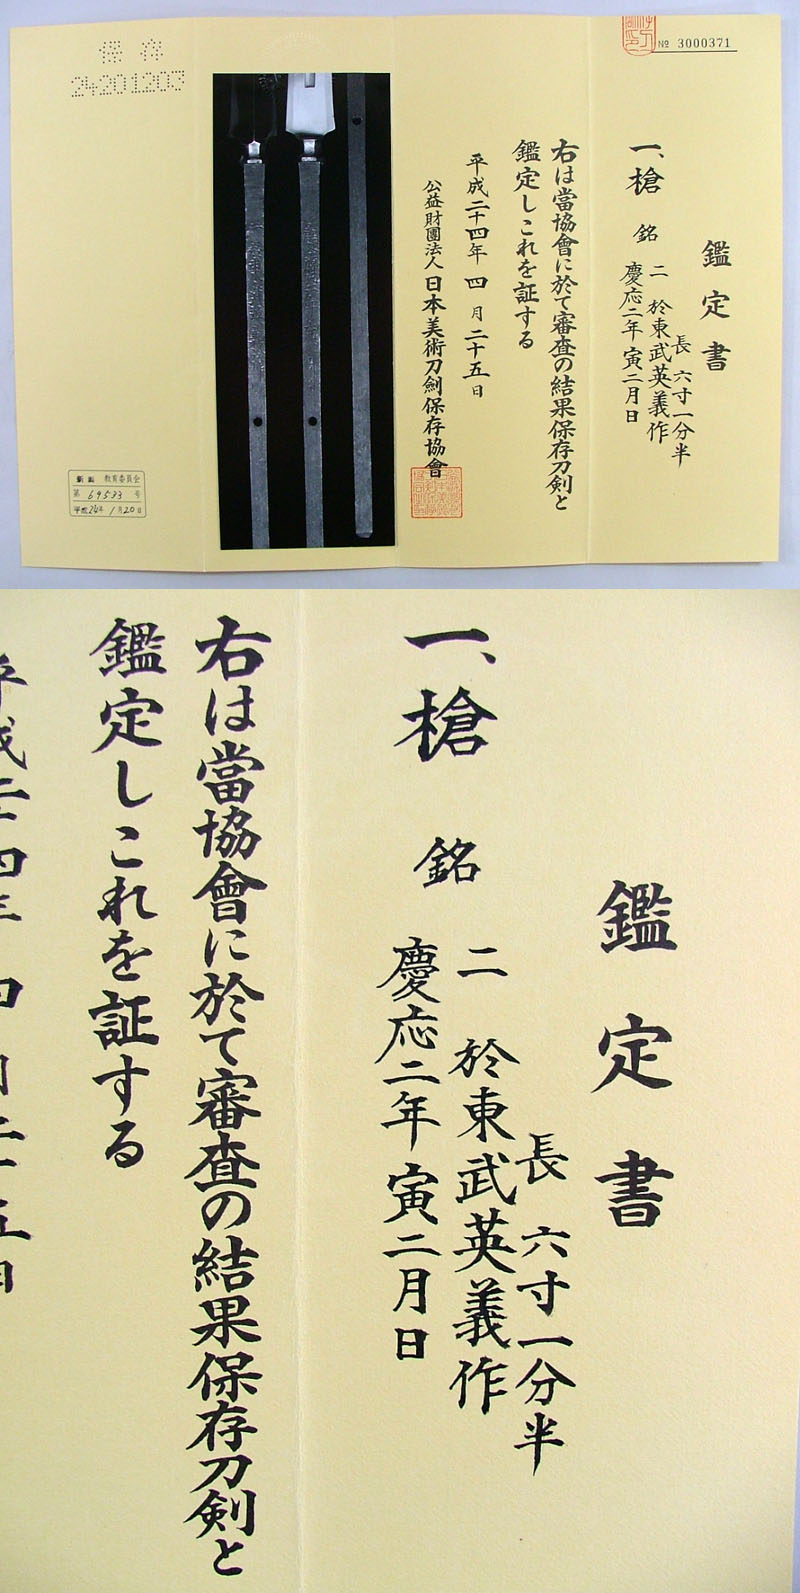 保存
24201203
№ 3000371
鑑定書
長 六寸一分半
一、槍 銘 二 於東武英義作
慶応二年寅二月日
右は當協會に於て審査の結果保存刀剣と
鑑定しこれを証する
平成二十四年 四月二十五日
公益財團法人 日本美術刀劍保存協會
教育委員会
第 69533 号
平成24年 1月20日
鑑定書
長 六寸一分半
一、槍 銘 二 於東武英義作
慶応二年寅二月日
右は當協會に於て審査の結果保存刀剣と
鑑定しこれを証する
平成二十四年 四月二十五日